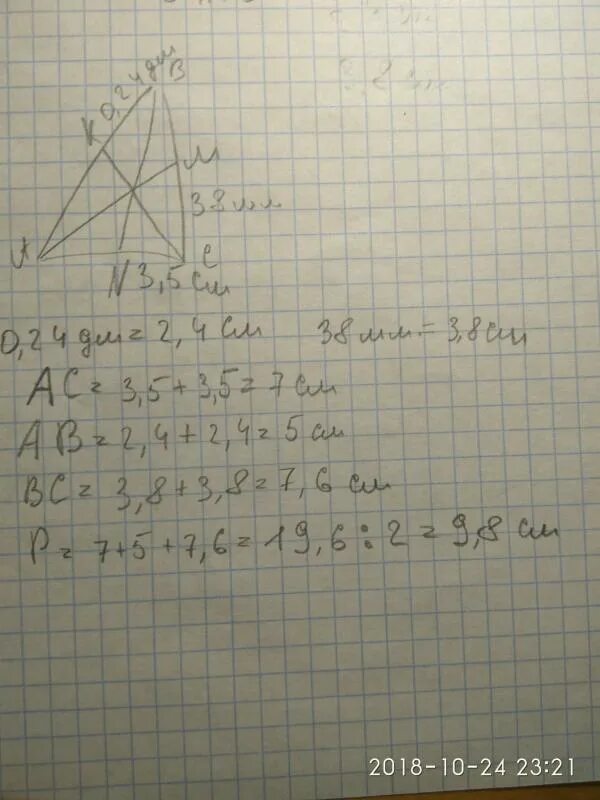 0,24 дм
B
K
M
38 мм
A
C
N 3,5 см
0,24 дм = 2,4 см 38 мм = 3,8 см
AC = 3,5 + 3,5 = 7 см
AB = 2,4 + 2,4 = 5 см
BC = 3,8 + 3,8 = 7,6 см
P = 7+5+7,6 = 19,6 : 2 = 9,8 см
2018-10-24 23:21